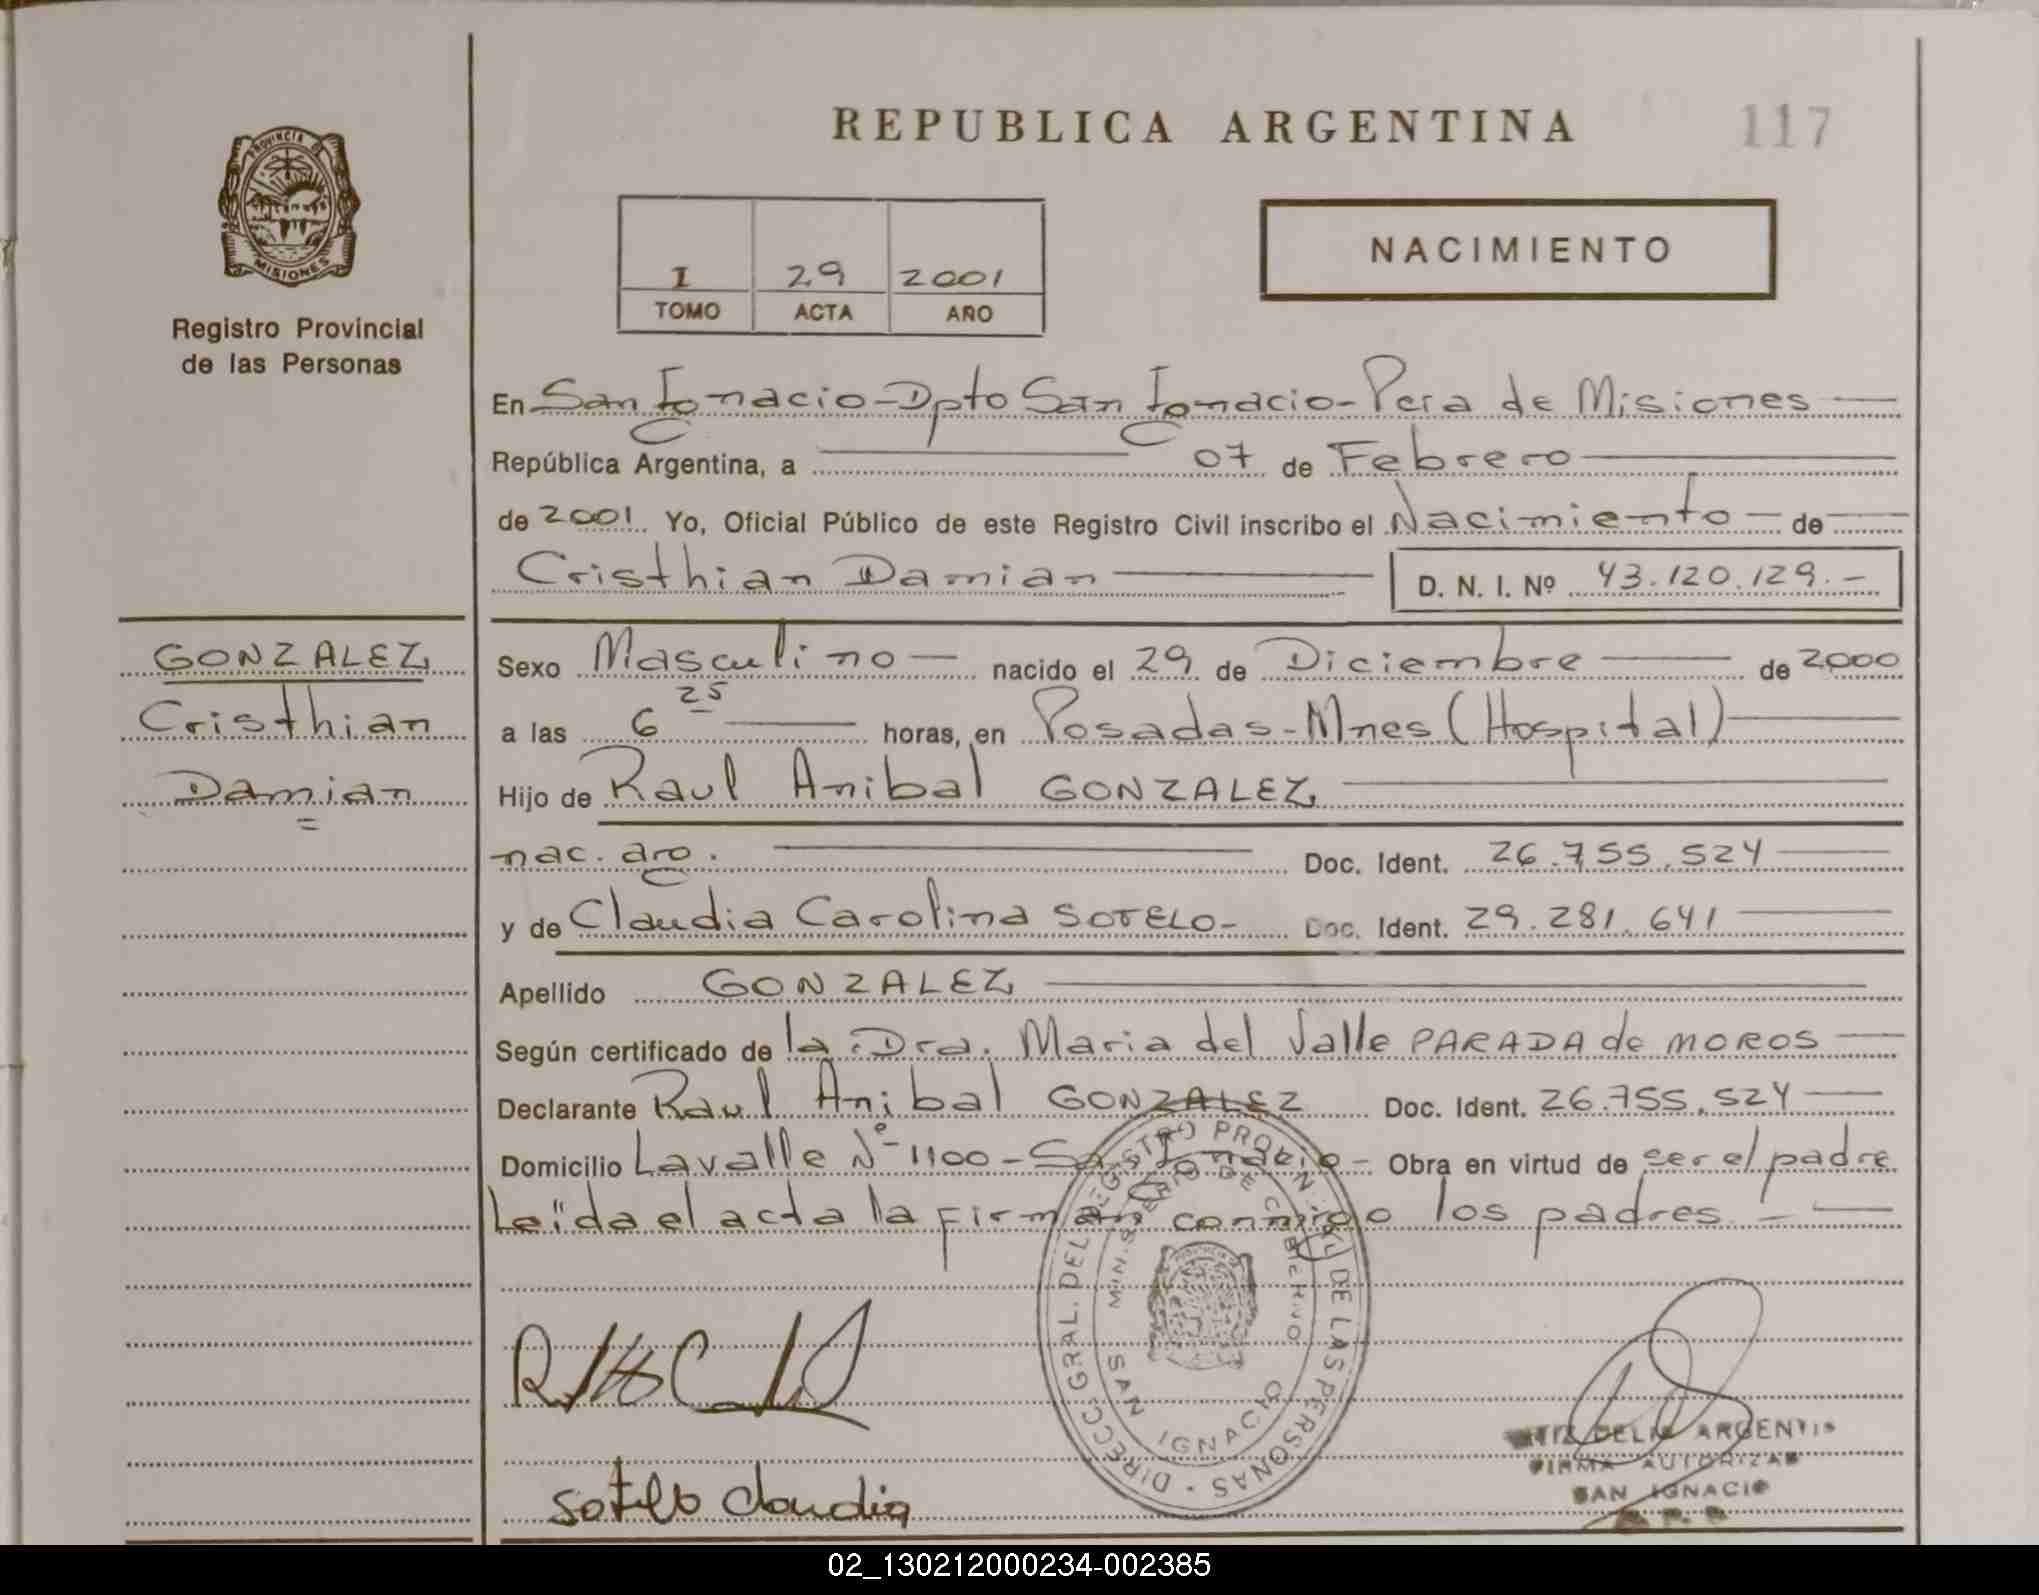 REPUBLICA ARGENTINA
117
PROVINCIA DE
MISIONES
Registro Provincial
de las Personas
I 29 2001
TOMO ACTA AÑO
NACIMIENTO
En San Ignacio-Dpto San Ignacio-Pcia de Misiones
República Argentina, a 07 de Febrero
de 2001. Yo, Oficial Público de este Registro Civil inscribo el Nacimiento de
Cristhian Damian D. N. I. Nº 43.120.129.-
GONZALEZ
Cristhian
Damian
Sexo Masculino nacido el 29 de Diciembre de 2000
a las 6 25 horas, en Posadas-Mnes (Hospital)
Hijo de Raul Anibal GONZALEZ
nac. arg. Doc. Ident. 26.755.524
y de Claudia Carolina SOTELO- Doc. Ident. 29.281.641
Apellido GONZALEZ
Según certificado de la Dra. Maria del Valle PARADA de MOROS
Declarante Raul Anibal GONZALEZ Doc. Ident. 26.755.524
Domicilio Lavalle Nº 1100-San Ignacio- Obra en virtud de ser el padre
Leïda el acta la firman conmigo los padres.-
DIRECC. GRAL. DEL REGISTRO PROVINCIAL DE LAS PERSONAS
MINISTERIO DE GOBIERNO
SAN IGNACIO
sotelo claudia
DELIA ARGENTI
FIRMA AUTORIZAD
SAN IGNACIO
02_130212000234-002385